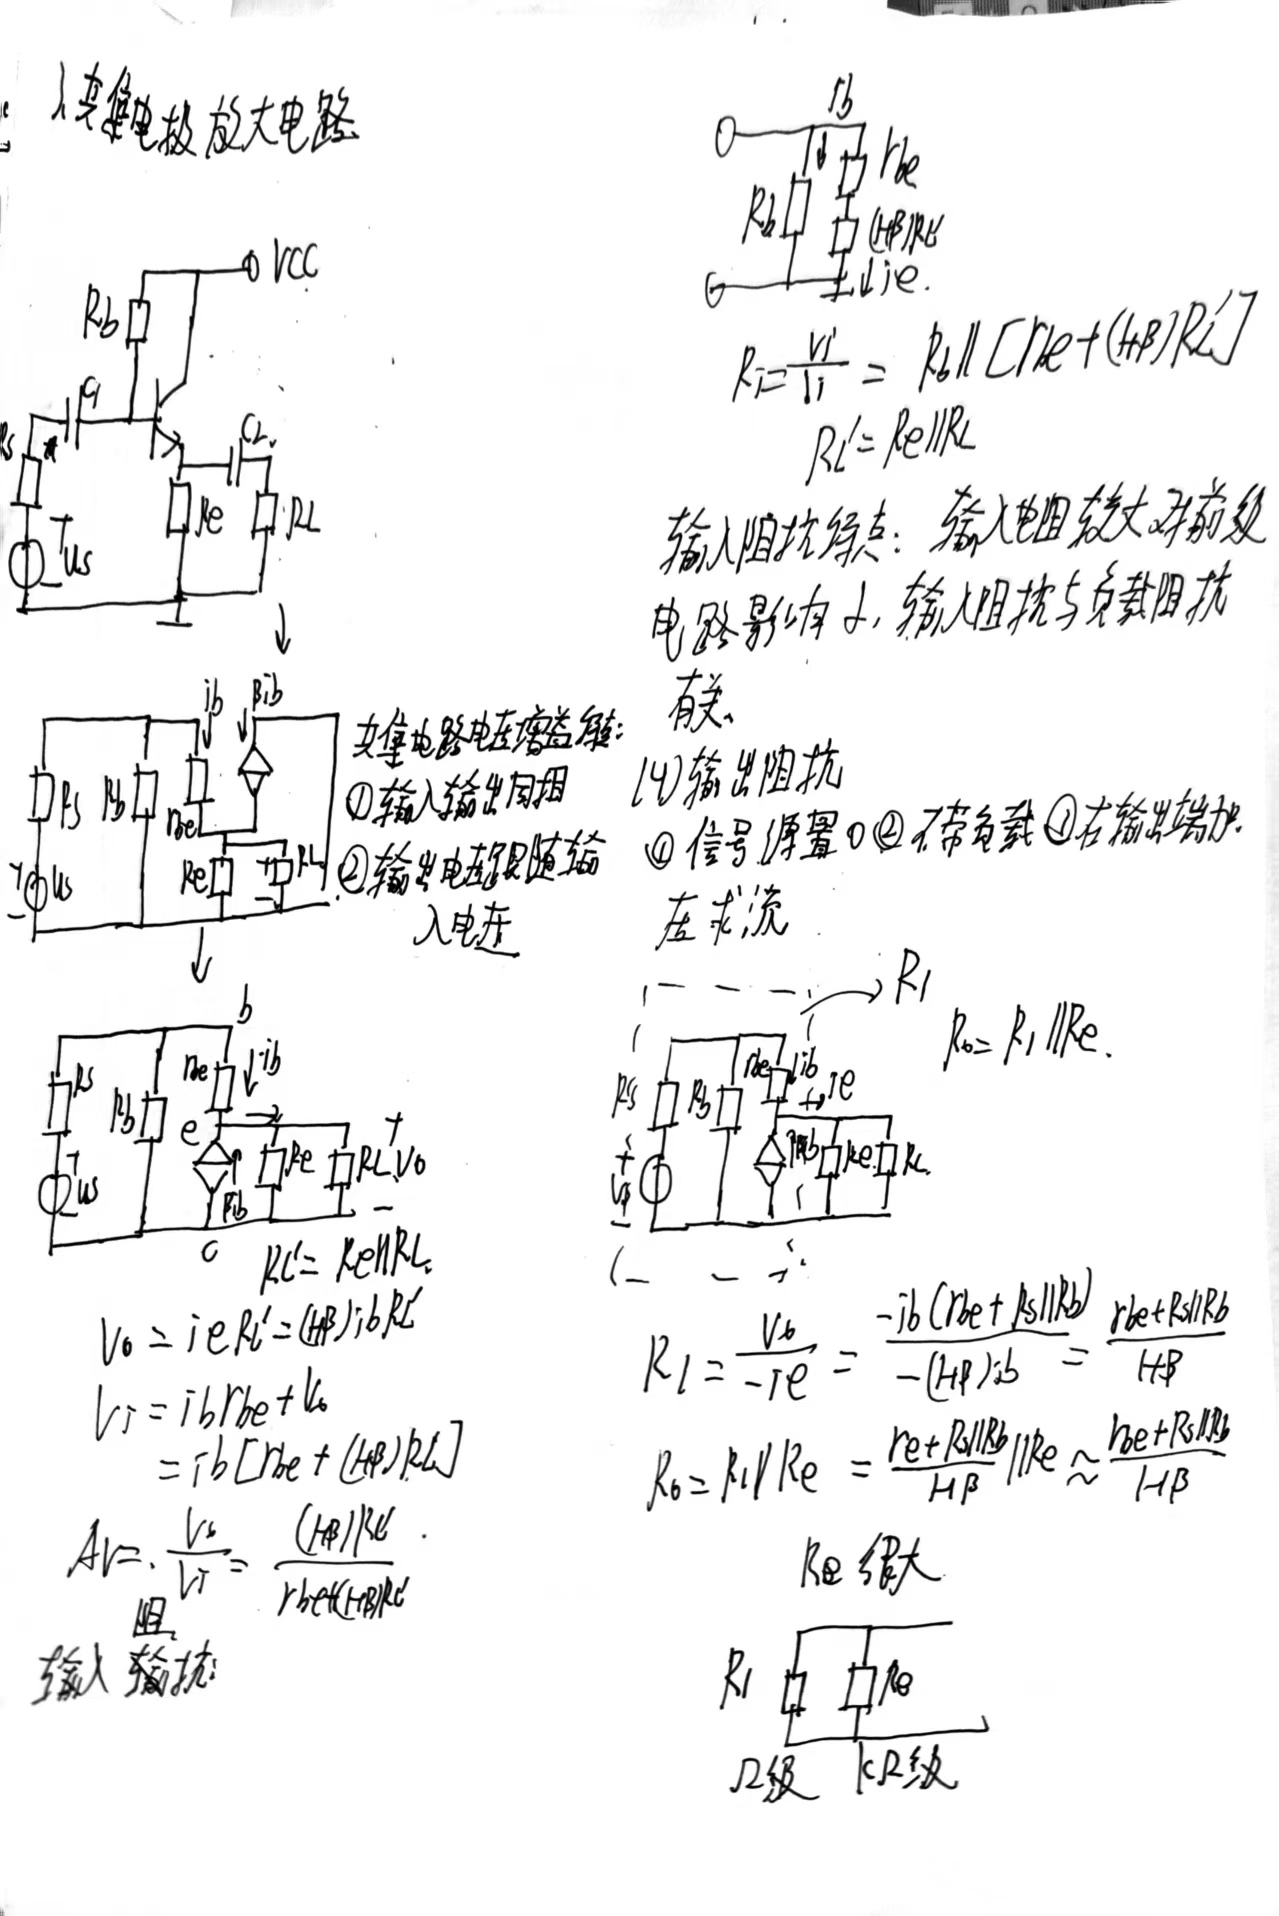 共集电极放大电路
VCC
Rb
C1
Rs
+
us
-
C2
Re
RL
ib
βib
Rs
Rb
rbe
Re
+
RL
-
+
us
-
共集电路电压增益特点:
①输入输出同相
②输出电压跟随输
入电压
b
Rs
Rb
rbe
ib
e
+
us
-
βib
Re
RL
+
Vo
-
c
RL'=Re//RL
Vo=ieRL'=(1+β)ibRL'
Vi=ibrbe+Vo
=ib[rbe+(1+β)RL']
Av=Vo/Vi=(1+β)RL'/rbe+(1+β)RL'
阻
输入 抗:
Ib
Rb
rbe
(1+β)RL'
ie
Ri=Vi/Ii=Rb//[rbe+(1+β)RL']
RL'=Re//RL
输入阻抗特点: 输入电阻较大对前级
电路影响小,输入阻抗与负载阻抗
有关
(4)输出阻抗
①信号源置0②不带负载③在输出端加
压求流
R1
Ro=R1//Re.
Rs
Rb
rbe
ib
ie
+
-
Re
RL
R1=Vo/-ie=-ib(rbe+Rs//Rb)/-(1+β)ib=rbe+Rs//Rb/1+β
Ro=R1//Re=re+Rs//Rb/1+β//Re≈rbe+Rs//Rb/1+β
Re很大
R1
Re
Ω级
kΩ级